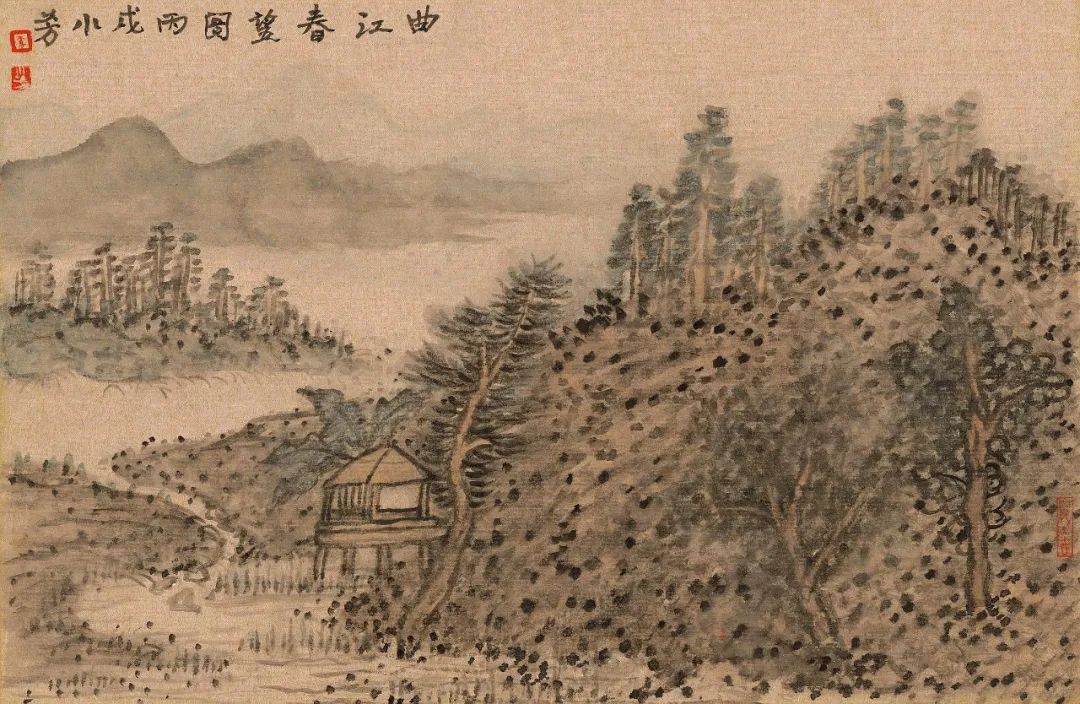 曲江春望图丙戌小芳